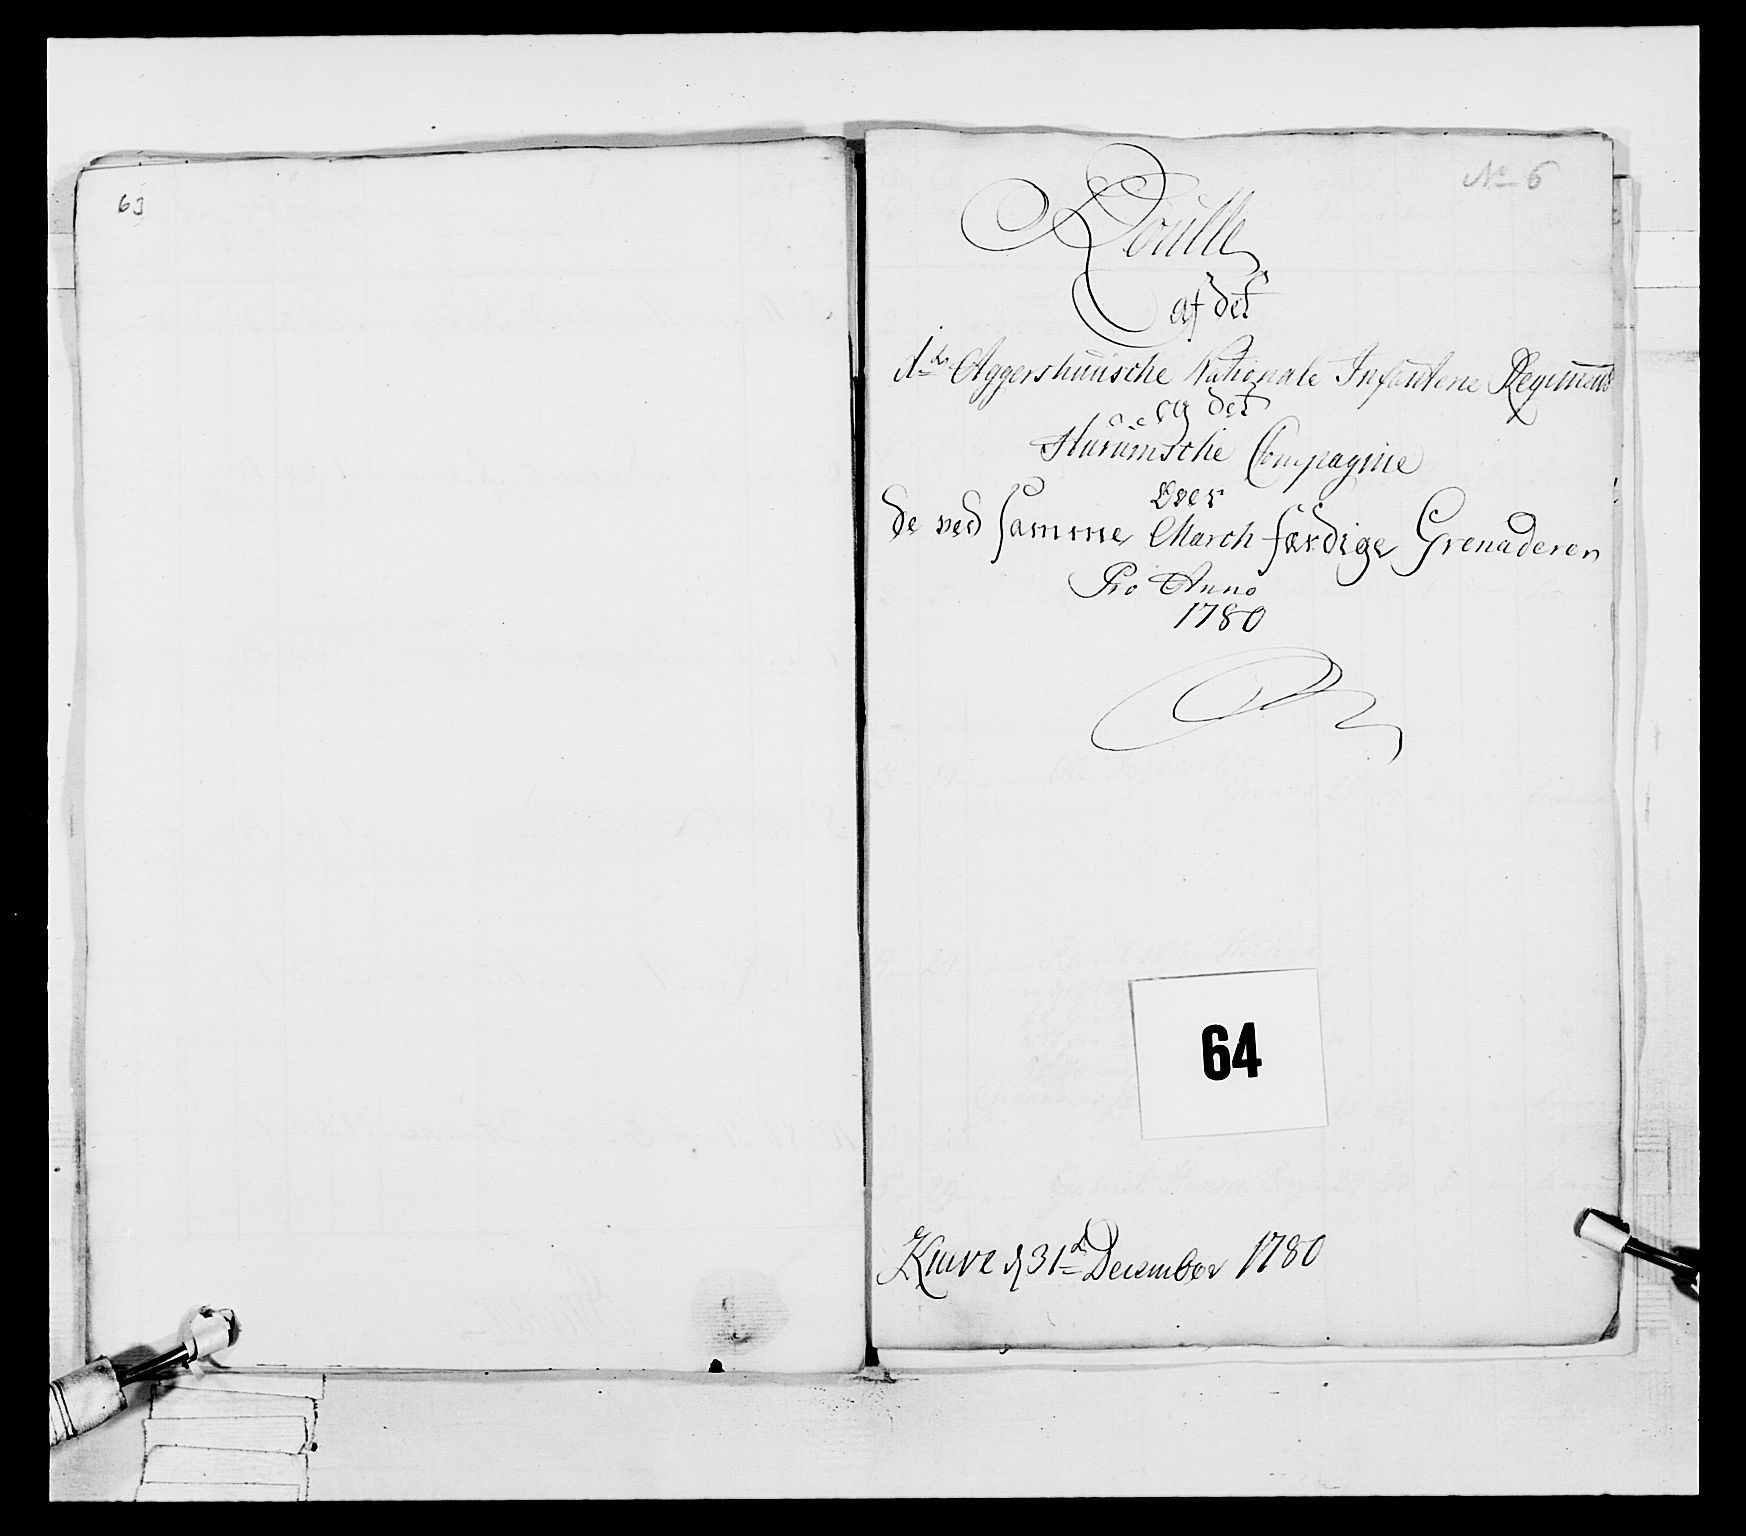 63
No 6
Roulle
af det
1ste Aggershuusische Nationale Infanterie Regiment
og det
Hurumsche Compagnie
Over
de ved Samme March færdige Grenaderer
Pro Anno
1780
64
d 31te December 1780